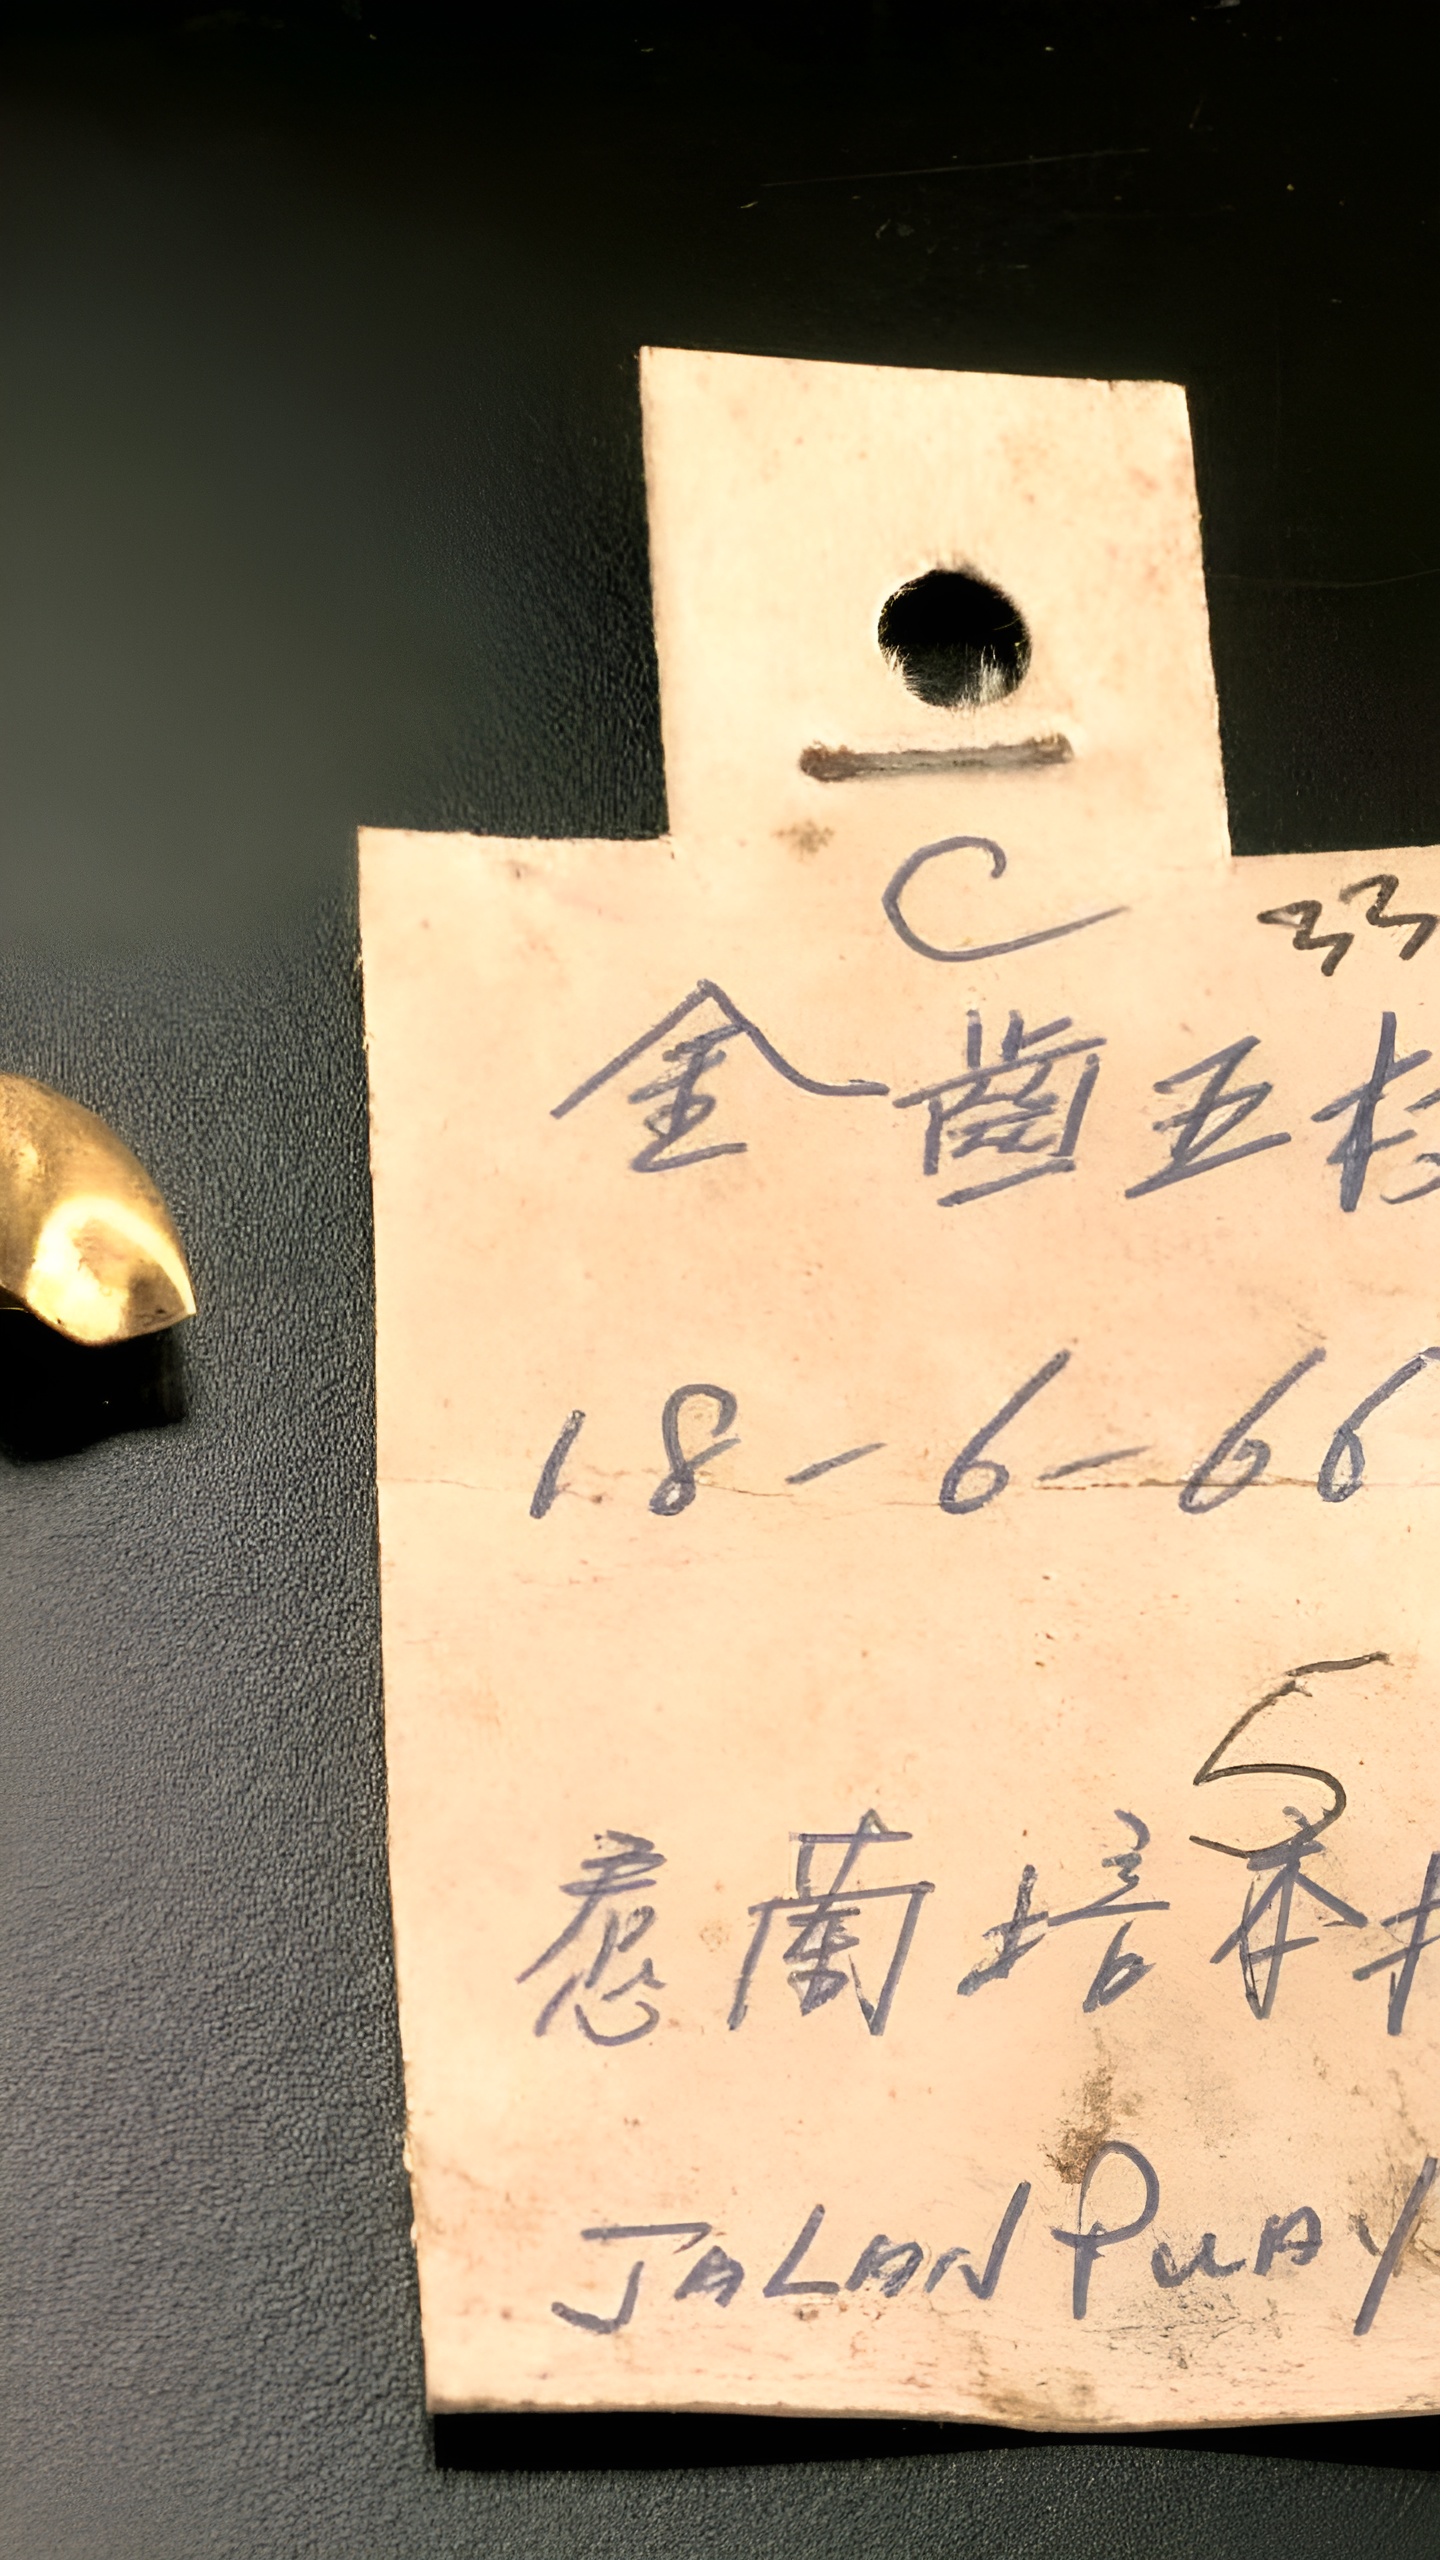 C 33
金齒五枚
18-6-66
5
惹蘭培本
JALAN PUAY